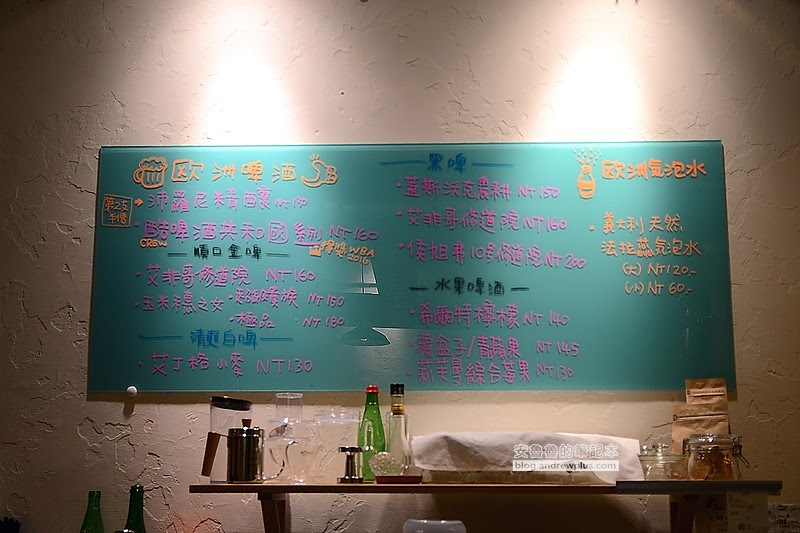 歐洲啤酒
第2支半價
沛羅尼精西裏 NT130
酷啤酒共和國系列 NT160
CREW
得獎 WBA 2016
順口金啤
艾非哥修道院 NT160
玉米穗之女·老強蹟族 NT150
·極品 NT180
清爽白啤
艾丁格小麥 NT130
黑啤
蓋斯沃克農耕 NT150
艾非哥修道院 NT160
侯坦弗10號修道院 NT200
水果啤酒
希爾特檸檬 NT140
覆盆子/青蘋果 NT145
斯芙曼綜合莓果 NT130
歐洲氣泡水
義大利天然
法拉蕊氣泡水
(大) NT120-
(小) NT60-
安魯魯的筆記本
blog.andrewplus.com